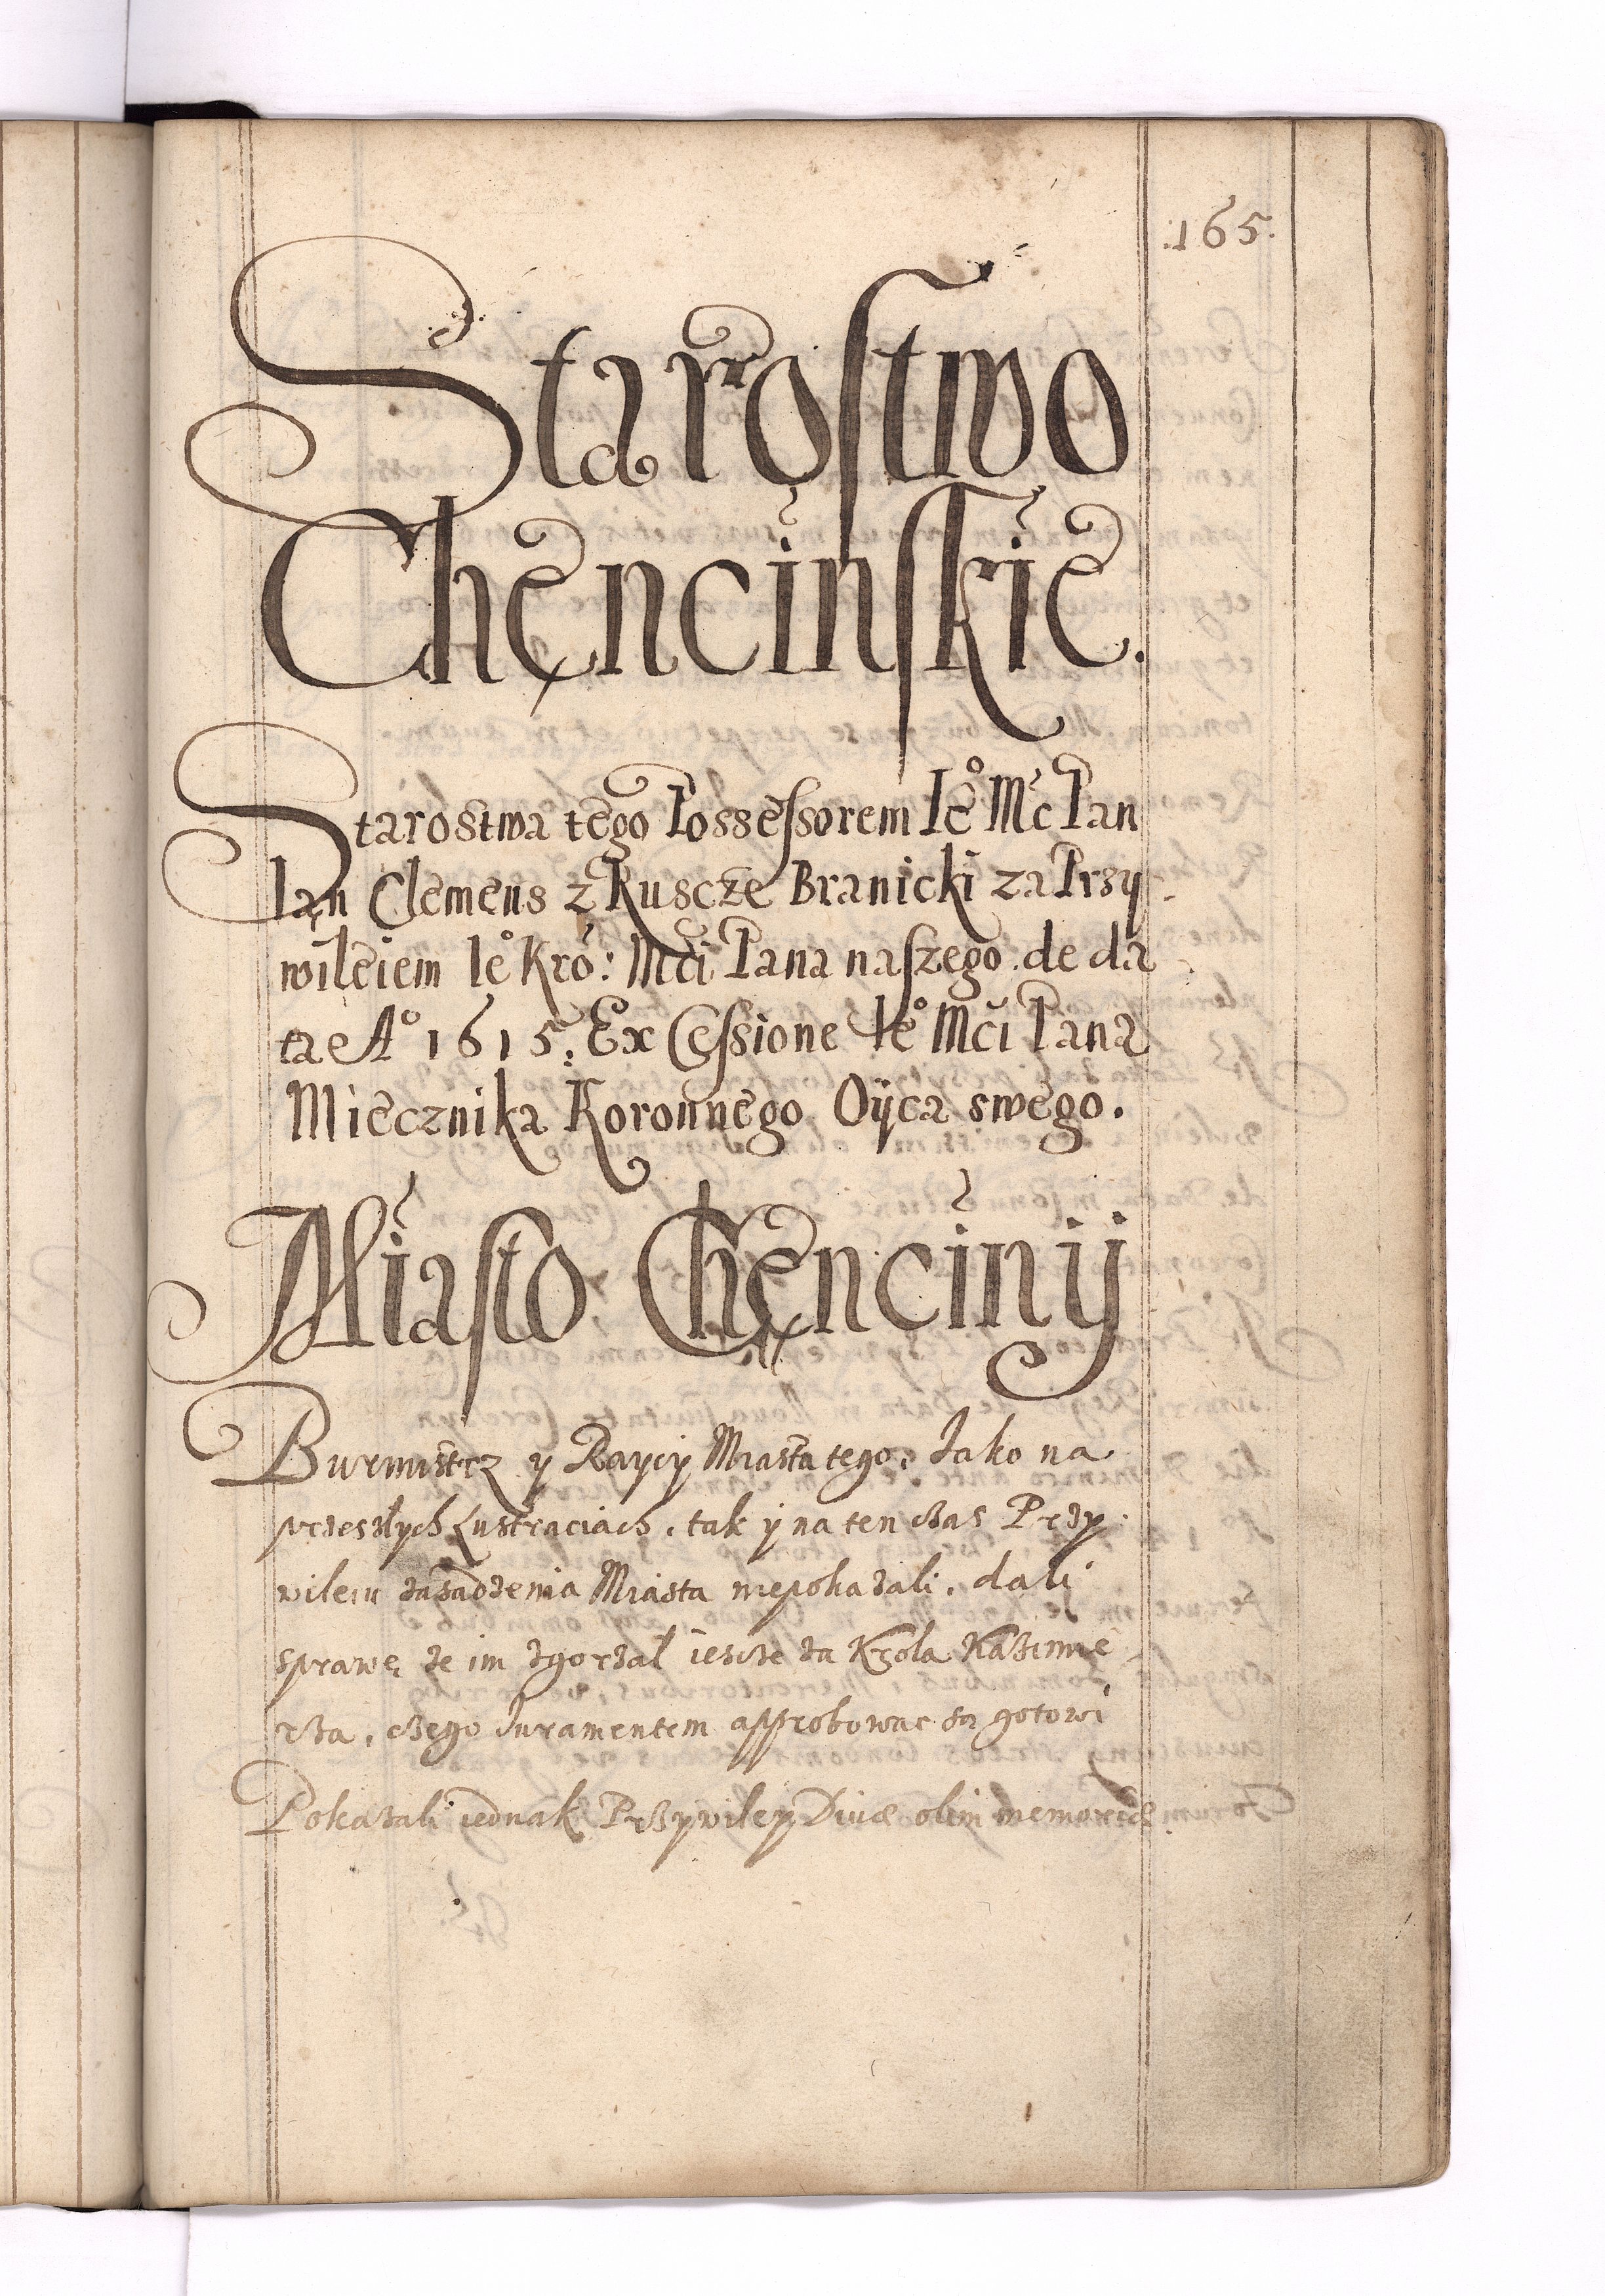 :165.
Starostwo
Chęncinskie.
Starostwa tego Possessorem Ie° Mć Pan
Ian Clemens z Ruscze Branicki za Przy-
wileiem Ie° Kró: Mći Pana naszego de da
ta A° 1615. Ex Cessione Ie° Mći Pana
Miecznika Koronnego Oyca swego.
Miasto Chęnciny
Burmistrz y Raycy Miasta tego, Iako na
przeszłych Lustraciach, tak y na ten czas Przy-
wileiu zasadzenia Miasta niepokazali, dali
sprawę ze im zgorzał iescze za Krola Kazimie-
rza, czego Iuramentem approbowac są gotowi
Pokazali iednak Przywiley Diuæ olim memoriæ